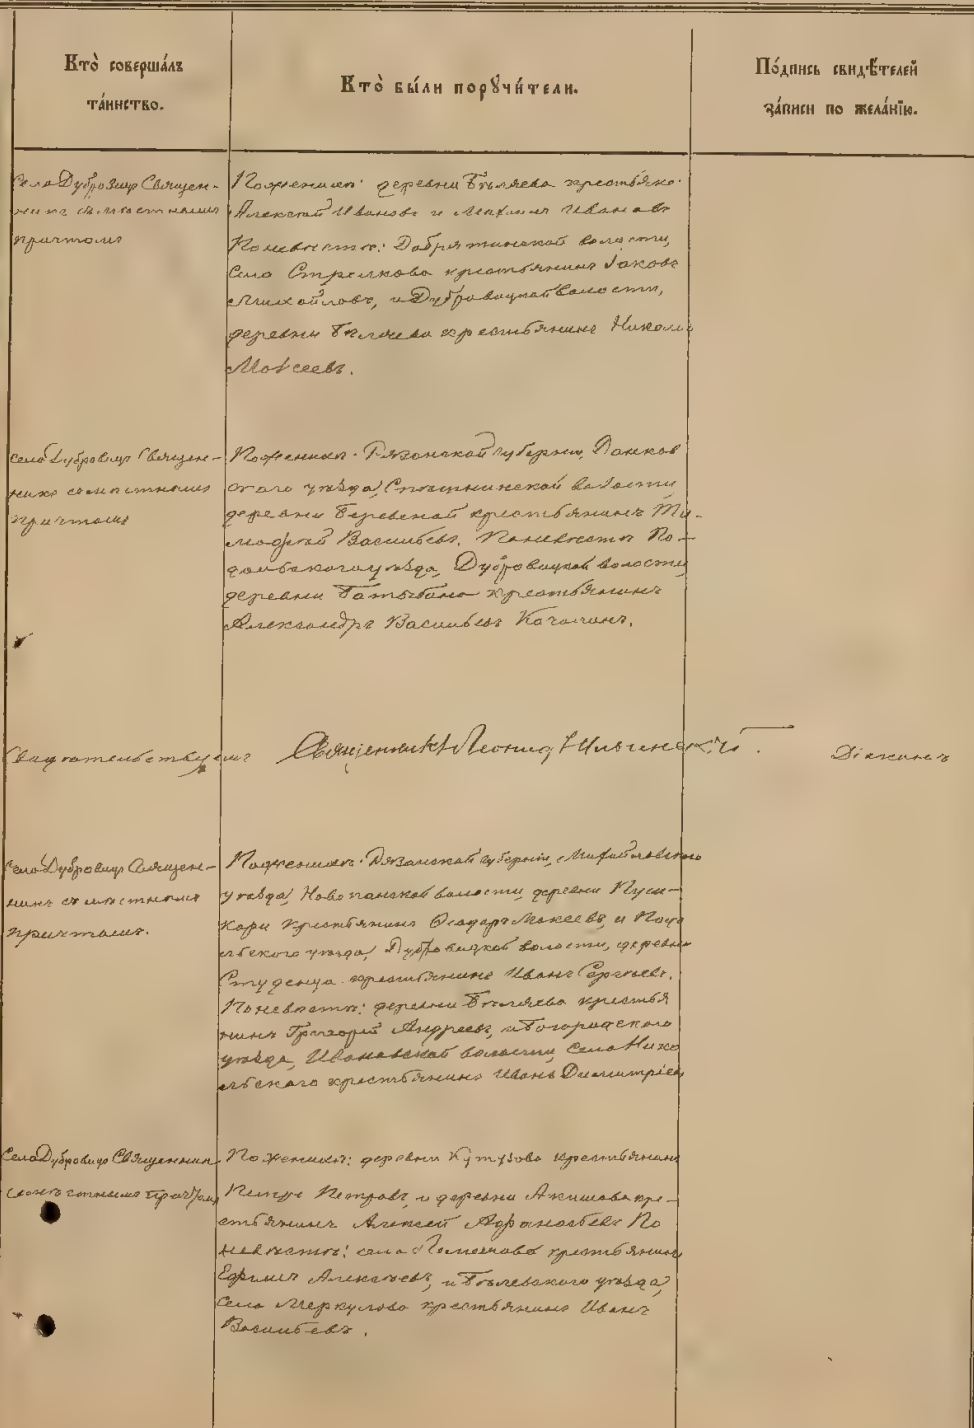 Кто̀ соверша́лъ
та́инство.
Кто̀ бы́ли порꙋчи́тели.
По́дпись свидѣ́телей
за́писи по жела́нїю.
Села Дубровицъ Священ-
никъ съ мѣстнымъ
причтомъ
По женихѣ: деревни Бѣляева крестьяне
Алексѣй Ивановъ и Максимъ Ивановъ
По невѣстѣ: Добрятинской волости,
села Стрелкова крестьянинъ Іаковъ
Михайловъ, и Дубровицкой волости,
деревни Бѣляева крестьянинъ Николай
Моѵсеевъ.
села Дубровицъ Священ-
никъ съ мѣстнымъ
причтомъ
По женихѣ: Рязанской губерніи, Данков
скаго уѣзда, волости
деревни крестьянинъ Ти-
мофѣй Васильевъ. По невѣстѣ По-
дольскаго уѣзда, Дубровицкой волости,
деревни Батыбина крестьянинъ
Александръ Васильевъ Качалинъ.
Свидѣтельствуемъ
Священникъ Леонид Ильинскій.
Діаконъ
Села Дубровицъ Священ-
никъ съ мѣстнымъ
причтомъ.
По женихѣ: Рязанской губерніи, Михайловскаго
уѣзда, Новопанской волости, деревни Пуш-
кари крестьянинъ Ѳеодоръ Макеевъ, и Подо
льскаго уѣзда, Дубровицкой волости, деревни
Студенца крестьянинъ Иванъ Сергѣевъ.
По невѣстѣ: деревни Бѣляева крестья
нинъ Григорій Андреевъ, и Богородскаго
уѣзда, Ивановской волости, села Нико
льскаго крестьянинъ Иванъ Димитріевъ
Села Дубровицъ Священникъ
съ мѣстнымъ причтомъ
По женихѣ: деревни Кутузова крестьянинъ
Петръ Петровъ, и деревни Акишева кре-
стьянинъ Алексей Аѳанасьевъ По
невѣстѣ: села крестьянинъ
Ефимъ Алексѣевъ, и Бѣлевскаго уѣзда,
села Меркулова крестьянинъ Иванъ
Васильевъ.